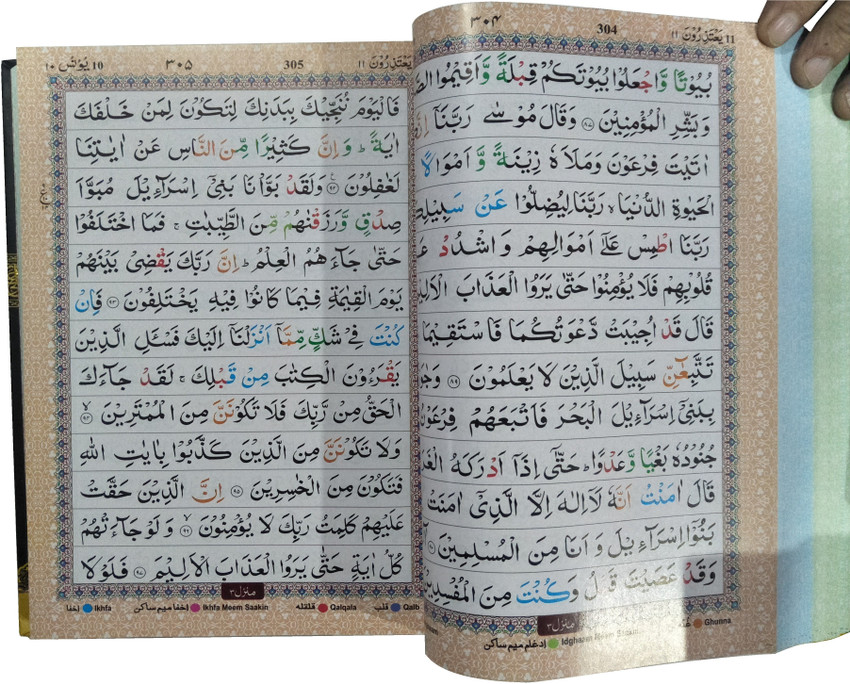 ۳۰۴ 304 یَعْتَذِرُوْنَ ۱۱ 11
بُیُوْتًا وَّاجْعَلُوْا بُیُوْتَكُمْ قِبْلَةً وَّاَقِیْمُوا
وَبَشِّرِ الْمُؤْمِنِیْنَ ﴿۸۷﴾ وَقَالَ مُوْسٰی رَبَّنَاۤ
اٰتَیْتَ فِرْعَوْنَ وَمَلَاَهٗ زِیْنَةً وَّ اَمْوَالًا
الْحَیٰوةِ الدُّنْیَا ۙ رَبَّنَا لِیُضِلُّوْا عَنْ سَبِیْلِكَ
رَبَّنَا اطْمِسْ عَلٰۤی اَمْوَالِهِمْ وَ اشْدُدْ
قُلُوْبِهِمْ فَلَا یُؤْمِنُوْا حَتّٰی یَرَوُا الْعَذَابَ
قَالَ قَدْ اُجِیْبَتْ دَّعْوَتُكُمَا فَاسْتَقِیْمَا
تَتَّبِعٰٓنِّ سَبِیْلَ الَّذِیْنَ لَا یَعْلَمُوْنَ ﴿۸۹﴾
بِبَنِیْۤ اِسْرَآءِیْلَ الْبَحْرَ فَاَتْبَعَهُمْ فِرْعَوْنُ
جُنُوْدُهٗ بَغْیًا وَّعَدْوًا ؕ حَتّٰۤی اِذَاۤ اَدْرَكَهُ
قَالَ اٰمَنْتُ اَنَّهٗ لَاۤ اِلٰهَ اِلَّا الَّذِیْۤ اٰمَنَتْ
بَنُوْۤا اِسْرَآءِیْلَ وَ اَنَا مِنَ الْمُسْلِمِیْنَ ﴿۹۰﴾
وَقَدْ عَصَیْتَ قَبْلُ وَكُنْتَ مِنَ الْمُفْسِدِیْنَ
منزل ۳
Ghunna
ادغام میم ساکن Idgham Meem Saakin
10 یُوْنُس ۱۰ ۳۰۵ 305 یَعْتَذِرُوْنَ ۱۱
فَالْیَوْمَ نُنَجِّیْكَ بِبَدَنِكَ لِتَكُوْنَ لِمَنْ خَلْفَكَ
اٰیَةً ؕ وَ اِنَّ كَثِیْرًا مِّنَ النَّاسِ عَنْ اٰیٰتِنَا
لَغٰفِلُوْنَ ﴿۹۲﴾ وَلَقَدْ بَوَّاْنَا بَنِیْۤ اِسْرَآءِیْلَ مُبَوَّاَ
صِدْقٍ وَّرَزَقْنٰهُمْ مِّنَ الطَّیِّبٰتِ ۚ فَمَا اخْتَلَفُوْا
حَتّٰی جَآءَهُمُ الْعِلْمُ ؕ اِنَّ رَبَّكَ یَقْضِیْ بَیْنَهُمْ
یَوْمَ الْقِیٰمَةِ فِیْمَا كَانُوْا فِیْهِ یَخْتَلِفُوْنَ ﴿۹۳﴾ فَاِنْ
كُنْتَ فِیْ شَكٍّ مِّمَّاۤ اَنْزَلْنَاۤ اِلَیْكَ فَسْـَٔلِ الَّذِیْنَ
یَقْرَءُوْنَ الْكِتٰبَ مِنْ قَبْلِكَ ۚ لَقَدْ جَآءَكَ
الْحَقُّ مِنْ رَّبِّكَ فَلَا تَكُوْنَنَّ مِنَ الْمُمْتَرِیْنَ ﴿۹۴﴾
وَلَا تَكُوْنَنَّ مِنَ الَّذِیْنَ كَذَّبُوْا بِاٰیٰتِ اللّٰهِ
فَتَكُوْنَ مِنَ الْخٰسِرِیْنَ ﴿۹۵﴾ اِنَّ الَّذِیْنَ حَقَّتْ
عَلَیْهِمْ كَلِمَتُ رَبِّكَ لَا یُؤْمِنُوْنَ ﴿۹۶﴾ وَ لَوْ جَآءَتْهُمْ
كُلُّ اٰیَةٍ حَتّٰی یَرَوُا الْعَذَابَ الْاَلِیْمَ ﴿۹۷﴾ فَلَوْلَا
منزل ۳
اِخفا Ikhfa اِخفا میم ساکن Ikhfa Meem Saakin قلقله Qalqala قلب Qalb